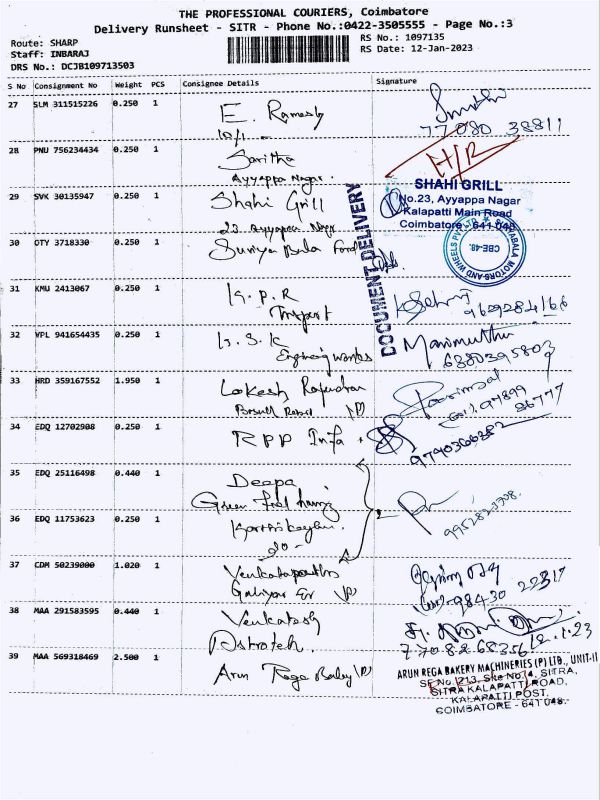 THE PROFESSIONAL COURIERS, Coimbatore
Delivery Runsheet - SITR - Phone No.:0422-3505555 - Page No.:3
Route: SHARP
RS No.: 1097135
Staff: INBARAJ
RS Date: 12-Jan-2023
DRS No.: DCJB109713503
S No Consignment No Weight PCS Consignee Details Signature
27 SLM 311515226 0.250 1 E. Ramesh
77080 38811
28 PNU 756234434 0.250 1 Saritha
Ayyappa Nagar.
H/R
29 SVK 30135947 0.250 1 Shahi Grill
23 Ayyappa Nagar
SHAHI GRILL
No.23, Ayyappa Nagar
Kalapatti Main Road
Coimbatore - 641 048
DOCUMENT DELIVERY
30 OTY 3718330 0.250 1 Suriya Bala Ford
SURYABALA MOTORS AND WHEELS PVT LTD
CBE-48.
31 KMU 2413067 0.250 1 K. P. R
Transport
9629284166
32 VPL 941654435 0.250 1 K. S. K
Engineering works
Manimuthu
6380395803
33 HRD 359167552 1.950 1 Lokesh
97899
86777
34 EDQ 12702908 0.250 1 RPP Infa
9740366382
35 EDQ 25116498 0.440 1 Deepa
Green
36 EDQ 11753623 0.250 1 Karthikeyan.
-do-
9952823708.
37 CDM 50239000 1.020 1
98430 22317
38 MAA 291583595 0.440 1 Venkatesh
Astrotech.
7708268356
12.1.23
39 MAA 569318469 2.500 1 Arun Rega Bakey (P)
ARUN REGA BAKERY MACHINERIES (P) LTD., UNIT-II
SF No. 213, Site No.4, SITRA,
SITRA KALAPATTI ROAD,
KALAPATTI POST,
COIMBATORE - 641 048.